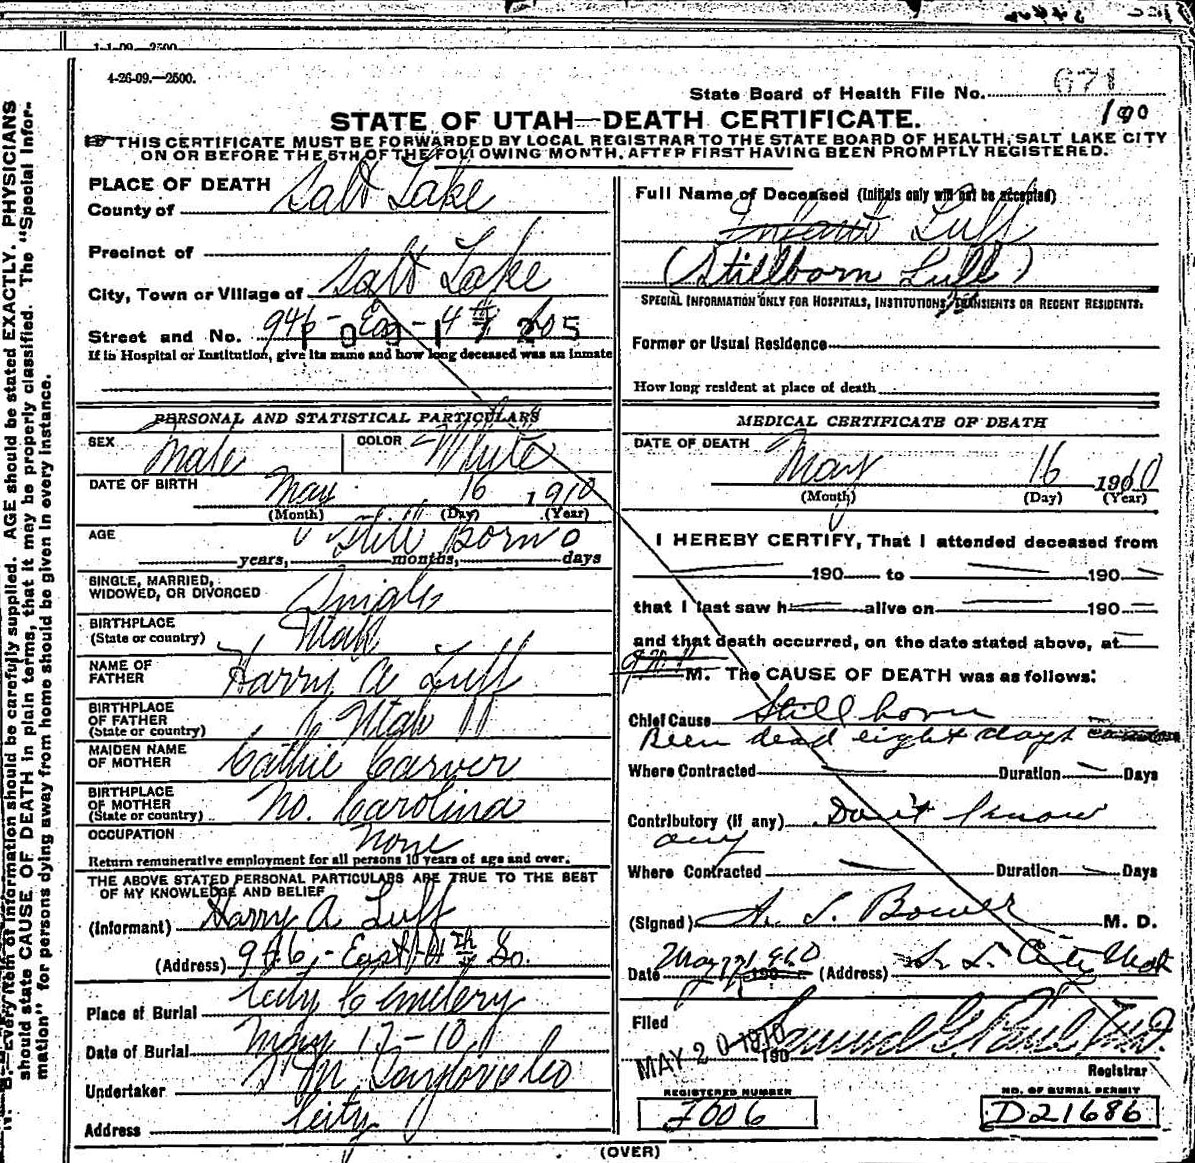 1-1-09—2500
4-26-09.—2500.
State Board of Health File No. 671
190
STATE OF UTAH—DEATH CERTIFICATE.
THIS CERTIFICATE MUST BE FORWARDED BY LOCAL REGISTRAR TO THE STATE BOARD OF HEALTH, SALT LAKE CITY
ON OR BEFORE THE 5TH OF THE FOLLOWING MONTH, AFTER FIRST HAVING BEEN PROMPTLY REGISTERED.
PLACE OF DEATH
County of Salt Lake
Precinct of
City, Town or Village of Salt Lake
Street and No. 946- East- 4th So
1 0 9 1 9 2 5
If in Hospital or Institution, give its name and how long deceased was an inmate
PERSONAL AND STATISTICAL PARTICULARS
SEX Male COLOR White
DATE OF BIRTH May 16 1910
(Month) (Day) (Year)
AGE Still Born
years, months, days
SINGLE, MARRIED,
WIDOWED, OR DIVORCED Single
BIRTHPLACE
(State or country) Utah
NAME OF
FATHER Harry A Luff
BIRTHPLACE
OF FATHER
(State or country) Utah
MAIDEN NAME
OF MOTHER Cathie Carver
BIRTHPLACE
OF MOTHER
(State or country) No. Carolina
OCCUPATION None
Return remunerative employment for all persons 10 years of age and over.
THE ABOVE STATED PERSONAL PARTICULARS ARE TRUE TO THE BEST
OF MY KNOWLEDGE AND BELIEF
(Informant) Harry A Luff
(Address) 946- East 4th So.
Place of Burial City Cemetery
Date of Burial May 17-10
Undertaker
Address City
Full Name of Deceased (Initials only will not be accepted)
Infant Luff
(Stillborn Luff)
SPECIAL INFORMATION ONLY FOR HOSPITALS, INSTITUTIONS, TRANSIENTS OR RECENT RESIDENTS:
Former or Usual Residence
How long resident at place of death
MEDICAL CERTIFICATE OF DEATH
DATE OF DEATH May 16 1910
(Month) (Day) (Year)
I HEREBY CERTIFY, That I attended deceased from
190 to 190
that I last saw h alive on 190
and that death occurred, on the date stated above, at
M. The CAUSE OF DEATH was as follows:
Chief Cause Still born
Been dead eight days
Where Contracted Duration Days
Contributory (if any) Don't know
any
Where Contracted Duration Days
(Signed) A. S. Bower M. D.
Date May 1910 190 (Address) S. L. City Utah
Filed MAY 20 1910 190 Samuel G. Paul, M.D.
Registrar
REGISTERED NUMBER
7006
NO. OF BURIAL PERMIT
D21686
(OVER)
N. B.—Every item of information should be carefully supplied. AGE should be stated EXACTLY. PHYSICIANS
should state CAUSE OF DEATH in plain terms, that it may be properly classified. The "Special Infor-
mation" for persons dying away from home should be given in every instance.